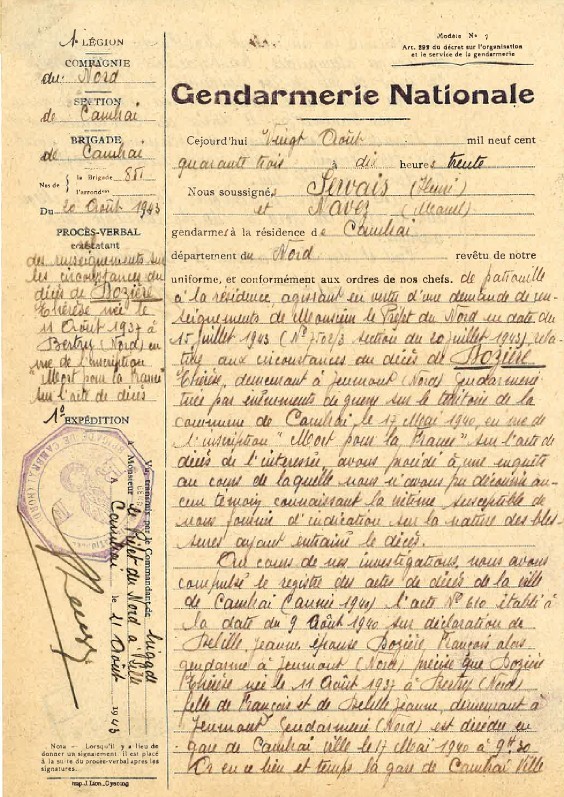 1e LÉGION
COMPAGNIE
du Nord
SECTION
de Cambrai
BRIGADE
de Cambrai
Nos de { la Brigade 851
l'arrondt
Du 20 Août 1943
PROCÈS-VERBAL
constatant
des renseignements sur
les circonstances du
décès de Dozière
Thérèse née le
11 Août 1937 à
Bertry (Nord) en
vue de l'inscription
"Mort pour la France"
sur l'acte de décès
1° EXPÉDITION
Vu et transmis par le Commandant de brigade
à Monsieur le Préfet du Nord à Lille
A Cambrai le 21 Août 1943
NOTA — Lorsqu'il y a lieu de
donner un signalement, il est placé
à la suite du procès-verbal après les
signatures.
Imp. J. Lion_Cysoing
Modèle No 7
Art. 292 du décret sur l'organisation
et le service de la gendarmerie
Gendarmerie Nationale
Cejourd'hui Vingt Août mil neuf cent
quarante trois à dix heures trente
Nous soussignés Servais (Henri)
et Navez (Marcel)
gendarmes à la résidence de Cambrai
département du Nord revêtu de notre
uniforme, et conformément aux ordres de nos chefs. de patrouille
à la résidence, agissant en vertu d'une demande de ren-
seignements de Monsieur le Préfet du Nord en date du
15 juillet 1943 (N° 3 section du 20 juillet 1943) rela-
tive aux circonstances du décès de Dozière
Thérèse, demeurant à Jeumont (Nord) Gendarmerie
tuée par instruments de guerre sur le territoire de la
commune de Cambrai le 17 Mai 1940, en vue de
l'inscription "Mort pour la France" sur l'acte de
décès de l'intéressée, avons procédé à une enquête
au cours de laquelle nous n'avons pu découvrir au-
cun témoin connaissant la victime susceptible de
nous fournir d'indication sur la nature des bles-
sures ayant entraîné le décès.
Au cours de nos investigations, nous avons
compulsé le registre des actes de décès de la ville
de Cambrai (année 1940) l'acte N° 610 établi à
la date du 9 Août 1940 sur déclaration de
Delille, Jeanne épouse Dozière, François alors
gendarme à Jeumont (Nord) précise que Dozière
Thérèse née le 11 Août 1937 à Bertry (Nord)
fille de François et de Delille Jeanne, demeurant à
Jeumont Gendarmerie (Nord) est décédée en
gare de Cambrai ville le 17 Mai 1940 à 9h30
Or en ce lieu et temps la gare de Cambrai Ville